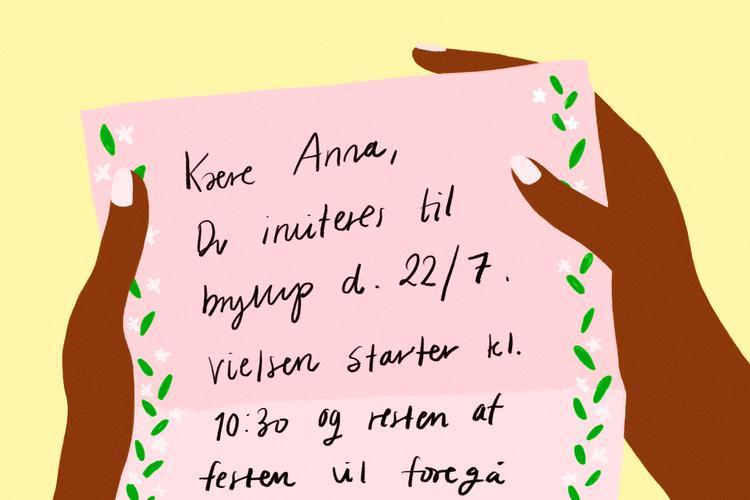 Kære Anna,
Du inviteres til
bryllup d. 22/7.
vielsen starter kl.
10:30 og resten af
festen vil foregå